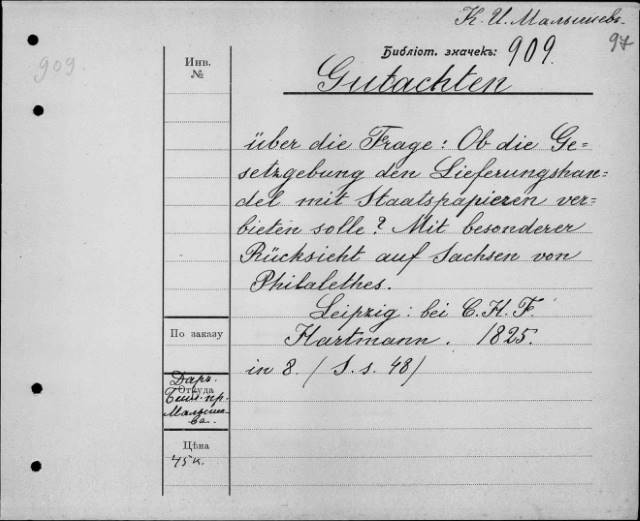 К. И. Малышевъ.
97
909.
Инв.
№
Библіот. значекъ: 909.
Gutachten
über die Frage: Ob die Ge=
setzgebung den Lieferungshan=
del mit Staatspapieren ver=
bieten solle? Mit besonderer
Rücksicht auf Sachsen von
Philalethes.
Leipzig: bei C. H. F.
Hartmann. 1825.
in 8. / S. s. 48/
По заказу
Даръ
Откуда
Малыше-
ва.
Цѣна
45 к.